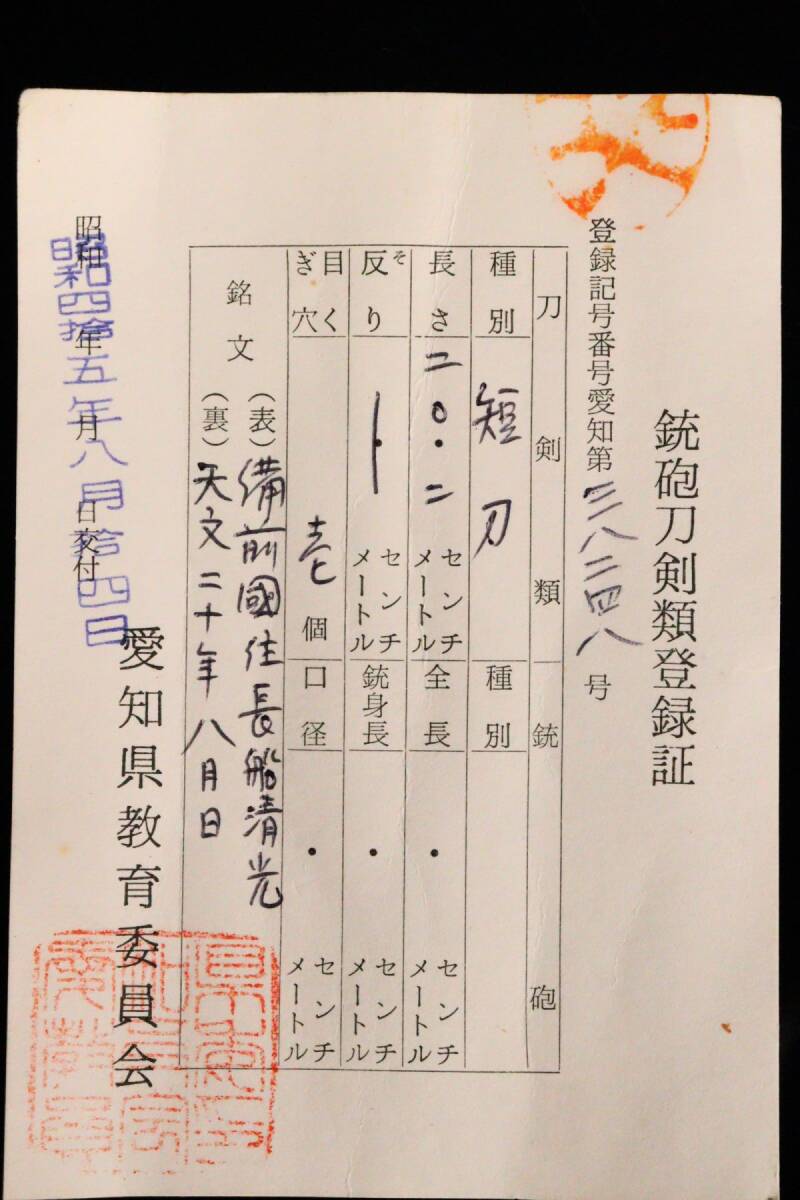 銃砲刀剣類登録証
登録記号番号愛知第三八二四八号
刀剣類
種別 短刀
長さ 二〇・二 センチメートル
反り そ センチメートル
目くぎ穴 壱個
銃砲
種別
全長 ・ センチメートル
銃身長 ・ センチメートル
口径 ・ センチメートル
銘文
(表)備前國住長船清光
(裏)天文二十年八月日
昭和 年 月 日交付
昭和四拾五年八月拾四日
愛知県教育委員会